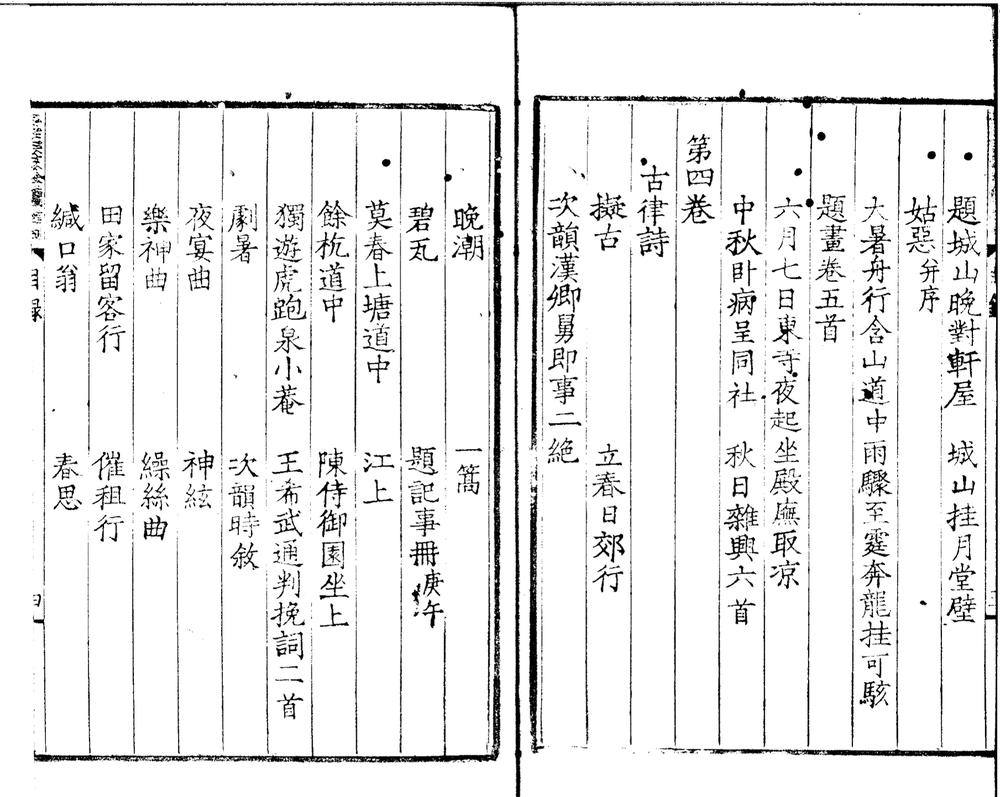 題城山晩對軒屋　城山挂月堂壁
姑惡并序
大暑舟行含山道中雨驟至霆奔龍挂可駭
題畫卷五首
六月七日東寺夜起坐殿廡取凉
中秋卧病呈同社　秋日雜興六首
第四卷
古律詩
擬古　立春日郊行
次韻漢卿舅即事二絶
晩潮　一篙
碧瓦　題記事冊庚午
莫春上塘道中　江上
餘杭道中　陳侍御園坐上
獨遊虎跑泉小菴　王希武通判挽詞二首
劇暑　次韻時敘
夜宴曲　神絃
樂神曲　繰絲曲
田家留客行　催租行
緘口翁　春思
目録
四